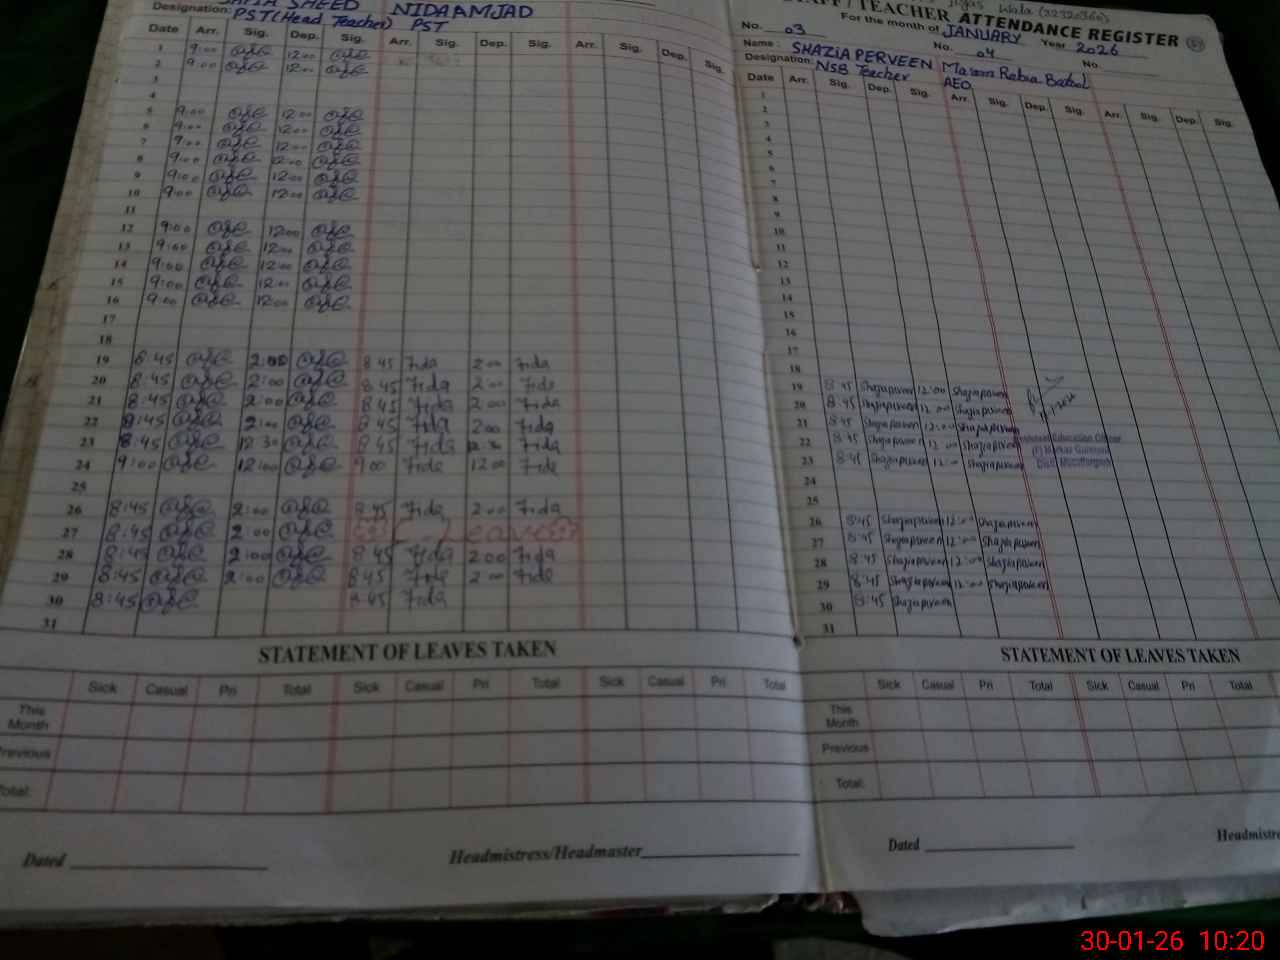 SHEED NIDA AMJAD
Designation: PST (Head Teacher) PST
Date Arr. Sig. Dep. Sig. Arr. Sig. Dep. Sig. Arr. Sig. Dep. Sig.
1 9:00 12:00
2 9:00 12:00
3
4
5 9:00 12:00
6 9:00 12:00
7 9:00 12:00
8 9:00 12:00
9 9:00 12:00
10 9:00 12:00
11
12 9:00 12:00
13 9:00 12:00
14 9:00 12:00
15 9:00 12:00
16 9:00 12:00
17
18
19 8:45 2:00 8 45 Nida 2 00 Nida
20 8:45 2:00 8 45 Nida 2 00 Nida
21 8:45 2:00 8 45 Nida 2 00 Nida
22 8:45 2:00 8 45 Nida 2 00 Nida
23 8:45 12 30 8 45 Nida 12 30 Nida
24 9:00 12:00 9 00 Nida 12 00 Nida
25
26 8:45 2:00 8 45 Nida 2 00 Nida
27 8:45 2 00 Leave
28 8:45 2:00 8 45 Nida 2 00 Nida
29 8:45 2:00 8 45 Nida 2 00 Nida
30 8:45 8 45 Nida
31
STATEMENT OF LEAVES TAKEN
Sick Casual Pri Total Sick Casual Pri Total Sick Casual Pri Total
This Month
Previous
Total:
Dated Headmistress/Headmaster
Wala (32320360)
STAFF / TEACHER ATTENDANCE REGISTER
For the month of JANUARY Year 2026
No. 03 No. 04 No.
Name: SHAZIA PERVEEN
Designation: NSB Teacher AEO
Date Arr. Sig. Dep. Sig. Arr. Sig. Dep. Sig. Arr. Sig. Dep. Sig.
1
2
3
4
5
6
7
8
9
10
11
12
13
14
15
16
17
18
19 8 45 Shaziaparveen 12:00 Shaziaparveen
20 8 45 Shaziaparveen 12:00 Shaziaparveen
21 8 45 Shaziaparveen 12:00 Shaziaparveen
22 8 45 Shaziaparveen 12:00 Shaziaparveen
23 8:45 Shaziaparveen 12:00 Shaziaparveen
Education Officer
24
25
26 8:45 Shaziaparveen 12:00 Shaziaparveen
27 8:45 Shaziaparveen 12:00 Shaziaparveen
28 8:45 Shaziaparveen 12:00 Shaziaparveen
29 8:45 Shaziaparveen 12:00 Shaziaparveen
30 8:45 Shaziaparveen
31
STATEMENT OF LEAVES TAKEN
Sick Casual Pri Total Sick Casual Pri Total
This Month
Previous
Total:
Dated Headmistre
30-01-26 10:20